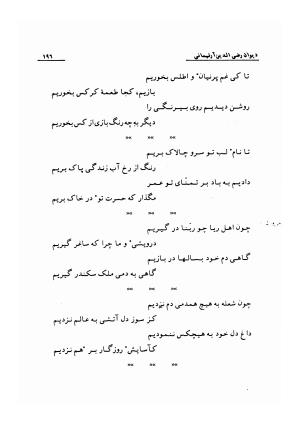 دیوان رضی الدین آرتیمانی
۱۹۶
تا کی غم پرنیان" و اطلس بخوریم
بازیم، کجا طعمهٔ کرکس بخوریم
روشن دیدیم روی بیرنگی را
دیگر به چه رنگ بازی از کس بخوریم
** ** **
تا نام" لب تو سرو چالاک بریم
رنگ از رخ آب زندگی پاک بریم
دادیم به باد بر تمنّای تو عمر
مگذار که حسرت تو" در خاک بریم
** ** **
چون اهل ریا چو ربّنا در گیریم
درویشی" و ما چرا که ساغر گیریم
گاهی دم خود بسالها در بازیم
گاهی به دمی ملک سکندر گیریم
** ** **
چون شعله به هیچ همدمی دم نزدیم
کز سوز دل آتشی به عالم نزدیم
داغ دل خود به هیچکس ننمودیم
کآسایش" روزگار بر" هم نزدیم
** ** **